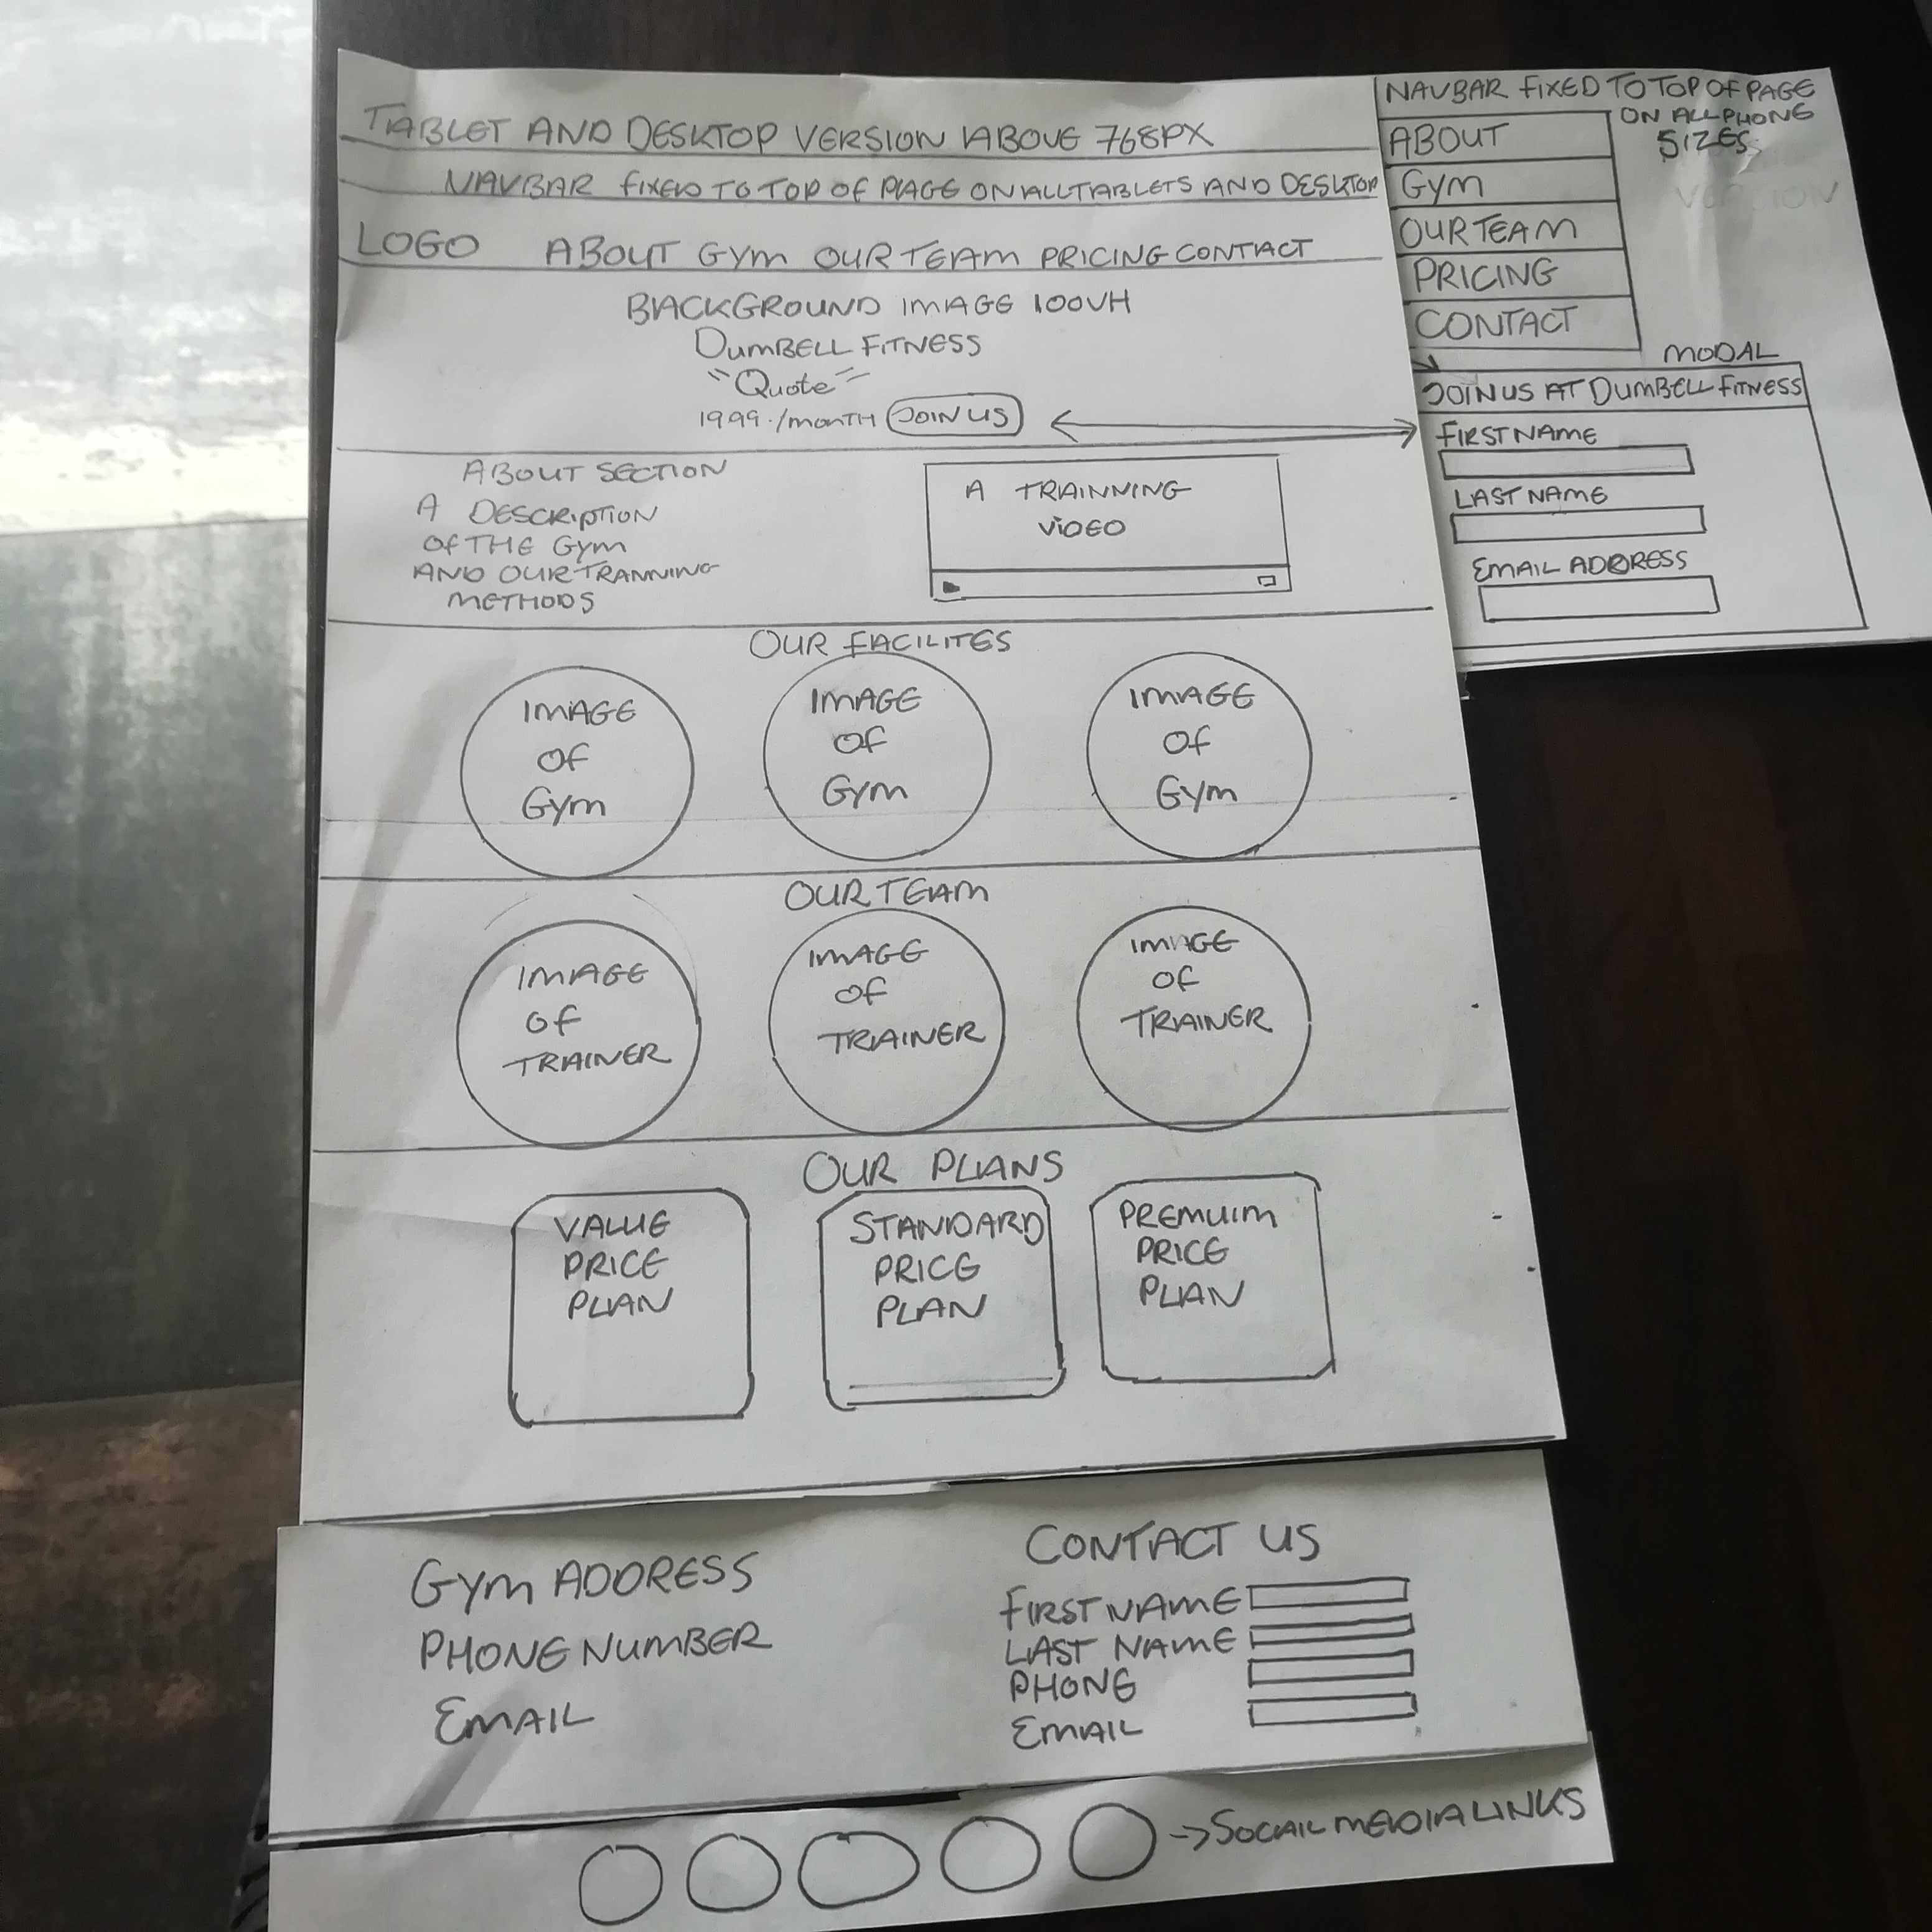 TABLET AND DESKTOP VERSION ABOVE 768PX
NAVBAR FIXED TO TOP OF PAGE ON ALL TABLETS AND DESKTOP
LOGO ABOUT GYM OUR TEAM PRICING CONTACT
BACKGROUND IMAGE 100VH
DUMBELL FITNESS
"Quote"
1999./MONTH JOIN US
ABOUT SECTION
A DESCRIPTION
OF THE GYM
AND OUR TRANNING
METHODS
A TRAINNING
VIDEO
OUR FACILITES
IMAGE
OF
GYM
IMAGE
OF
GYM
IMAGE
OF
GYM
OUR TEAM
IMAGE
OF
TRAINER
IMAGE
OF
TRAINER
IMAGE
OF
TRAINER
OUR PLANS
VALUE
PRICE
PLAN
STANDARD
PRICE
PLAN
PREMUIM
PRICE
PLAN
GYM ADDRESS
PHONE NUMBER
EMAIL
CONTACT US
FIRST NAME
LAST NAME
PHONE
EMAIL
->SOCAIL MEDIA LINKS
NAVBAR FIXED TO TOP OF PAGE
ON ALL PHONE
SIZES
VERSION
ABOUT
GYM
OUR TEAM
PRICING
CONTACT
MODAL
JOIN US AT DUMBELL FITNESS
FIRST NAME
LAST NAME
EMAIL ADDRESS